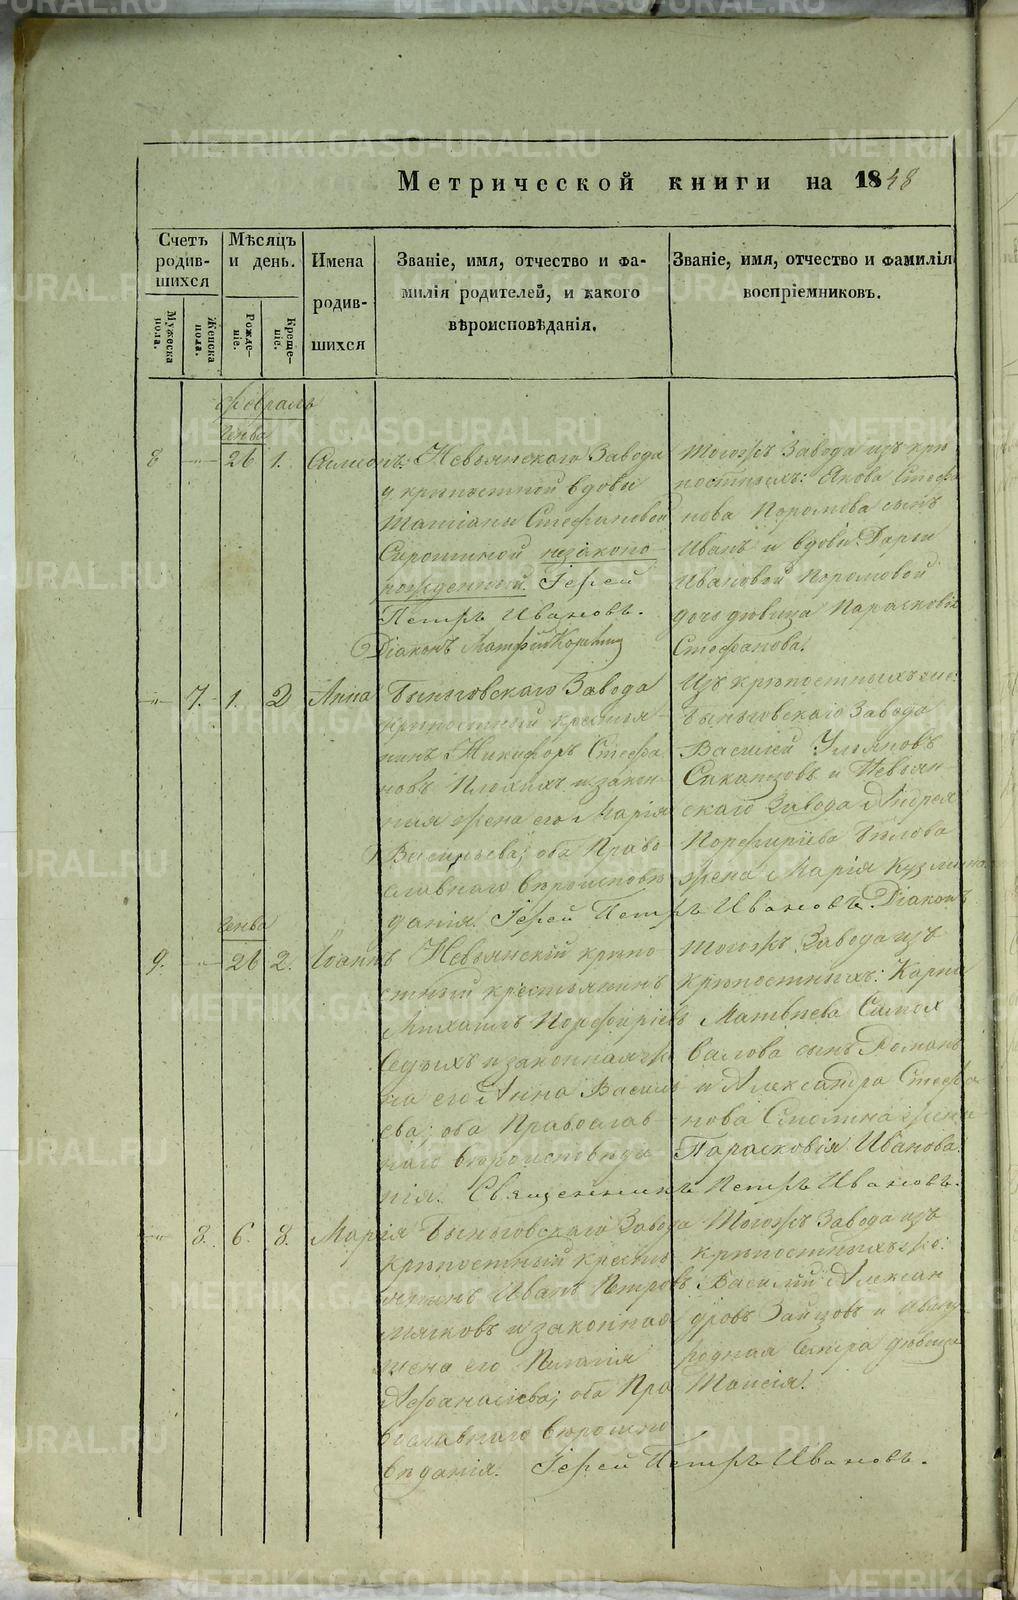 Метрической книги на 1848
Счетъ родив-шихся
Мѣсяцъ и день.
Имена родив-шихся
Званіе, имя, отчество и фа-
милія родителей, и какого
вѣроисповѣданія.
Званіе, имя, отчество и фамилія
воспріемниковъ.
Мужеска пола.
Женска пола.
Рожде-ніе.
Креще-ніе.
Февраль
Генва
8 26 1. Симеонъ. Невьянскаго Завода
у крѣпостной вдовы
Татіаны Стефановой
Сиротиной незаконо-
рожденный. Іерей
Петръ Ивановъ.
Діаконъ Матфей
Тогожъ Завода изъ крѣ
постныхъ: Якова Стефа
нова сынъ
Иванъ и вдовы Дарьи
Ивановой
дочь дѣвица Парасковія
Стефанова.
7. 1. 2 Анна Быньговскаго Завода
крѣпостный крестья-
нинъ Никифоръ Стефа
новъ Плохихъ и закон-
ная жена его Марія
Васильева; оба Право
славнаго вѣроисповѣ
данія. Іерей Петръ Ивановъ. Діаконъ
Изъ крѣпостныхъ же:
Быньговскаго Завода
Василій Ульяновъ
и Невьян-
скаго Завода Андрея
Порфиріева Бѣлова
жена Марія Кузмина.
Генва
9. 26 2. Іоаннъ Невьянскій крѣпо
стный крестьянинъ
Михаилъ Порфиріевъ
Сѣдыхъ и законная же
на его Анна Василь
ева; оба Православ
наго вѣроисповѣда
нія. Священникъ Петръ Ивановъ.
Тогожъ Завода изъ
крѣпостныхъ: Карпа
Матвѣева
сынъ Романъ
и Александра Стефа
нова жена
Парасковія Иванова.
8. 6. 8. Марія Быньговскаго Завода
крѣпостный кресть
янинъ Иванъ Петровъ
Мягковъ и законная
жена его Пелагія
Афанасіева; оба Пра
вославнаго вѣроиспо
вѣданія. Іерей Петръ Ивановъ.
Тогожъ Завода изъ
крѣпостныхъ же:
Василій Алексан
дровъ Зайцовъ и
родная Сестра дѣвица
Таисія.
METRIKI.GASO-URAL.RU